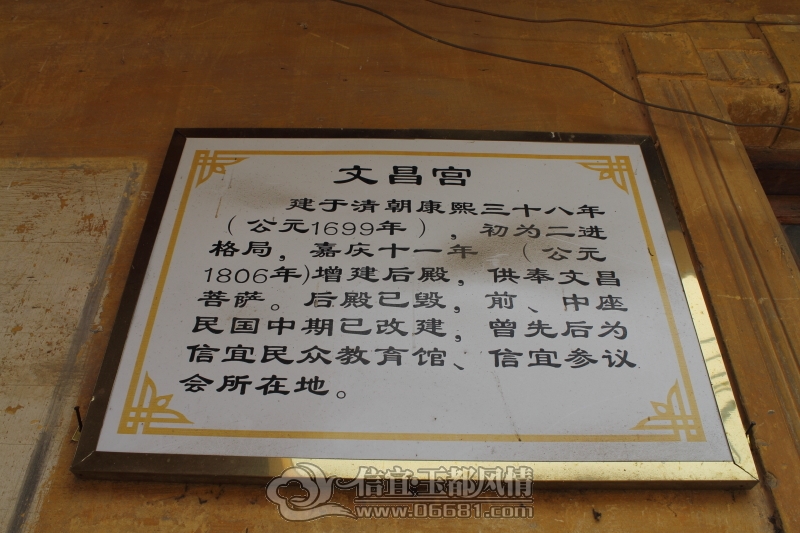 文昌宫
建于清朝康熙三十八年
（公元1699年），初为二进
格局，嘉庆十一年 （公元
1806年)增建后殿，供奉文昌
菩萨。后殿已毁，前、中座
民国中期已改建，曾先后为
信宜民众教育馆、信宜参议
会所在地。
信宜·玉都风情
www.06681.com